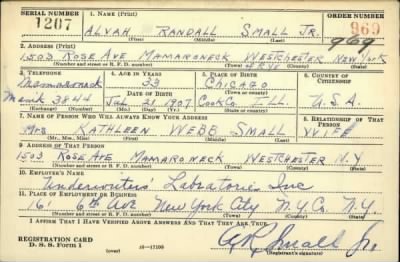 SERIAL NUMBER 1. NAME (Print) ORDER NUMBER
1207 ALVAH RANDALL SMALL JR. 969
(First) (Middle) (Last) 969
2. ADDRESS (Print)
1503 ROSE AVE MAMARONECK WESTCHESTER NEW YORK
(Number and street or R. F. D. number) (Town) (County) (State)
3. TELEPHONE 4. AGE IN YEARS 5. PLACE OF BIRTH 6. COUNTRY OF CITIZENSHIP
Mamaroneck 33 CHICAGO
DATE OF BIRTH (Town or county)
Mamk 3844 Jan 21 1907 Cook Co. ILL. U.S.A.
(Mo.) (Day) (Yr.) (State or country)
7. NAME OF PERSON WHO WILL ALWAYS KNOW YOUR ADDRESS 8. RELATIONSHIP OF THAT PERSON
Mrs KATHLEEN WEBB SMALL WIFE
(Mr., Mrs., Miss) (First) (Middle) (Last)
9. ADDRESS OF THAT PERSON
1503 ROSE AVE MAMARONECK WESTCHESTER N.Y
(Number and street or R. F. D. number) (Town) (County) (State)
10. EMPLOYER'S NAME
Underwriters Laboratories Inc
11. PLACE OF EMPLOYMENT OR BUSINESS
161 6th Ave New York City N.Y.Co. N.Y.
(Number and street or R. F. D. number) (Town) (County) (State)
I AFFIRM THAT I HAVE VERIFIED ABOVE ANSWERS AND THAT THEY ARE TRUE.
REGISTRATION CARD
D. S. S. Form 1 (over) 16—17105 A R Small Jr.
(Registrant's signature)